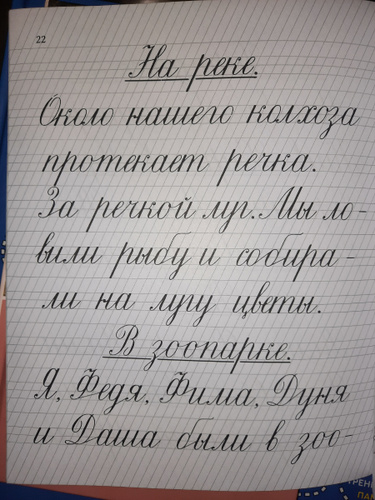 22
На реке.
Около нашего колхоза
протекает речка.
За речкой луг. Мы ло-
вили рыбу и собира-
ли на лугу цветы.
В зоопарке.
Я, Федя, Фима, Дуня
и Даша были в зоо-